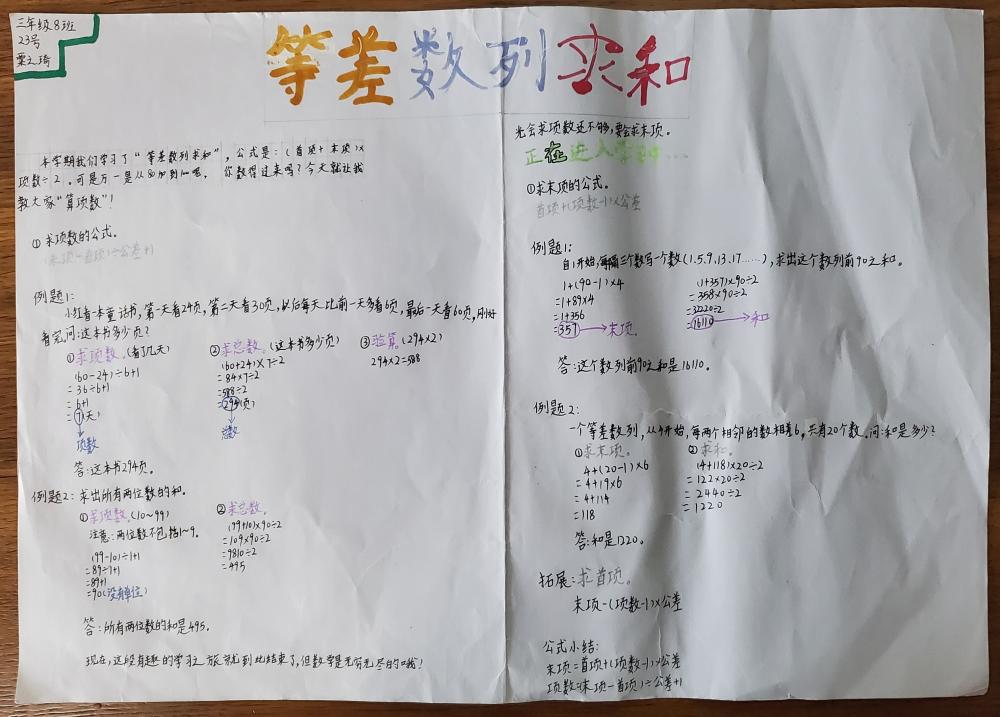 三年级8班
23号
栗之琦
等差数列求和
本学期我们学习了“等差数列求和”，公式是：(首项+末项)×
项数÷2。可是万一是从80加到100呢，你数得过来吗？今天就让我
教大家“算项数”！
①求项数的公式。
(末项-首项)÷公差+1
例题1：
小红看一本童话书，第一天看24页，第二天看30页，以后每天比前一天多看6页，最后一天看60页，刚好
看完，问：这本书多少页？
①求项数。(看了几天)
(60-24)÷6+1
=36÷6+1
=6+1
=7(天)
项数
②求总数。(这本书多少页)
(60+24)×7÷2
=84×7÷2
=588÷2
=294(页)
总数
③验算。(294×2)
294×2=588
答：这本书294页。
例题2：求出所有两位数的和。
①求项数。(10~99)
注意：两位数不包括1~9。
(99-10)÷1+1
=89÷1+1
=89+1
=90(没有单位)
②求总数。
(99+10)×90÷2
=109×90÷2
=9810÷2
=495
答：所有两位数的和是495。
现在，这段有趣的学习之旅就到此结束了，但数学是无穷无尽的哦！
光会求项数还不够，要会求末项。
正在进入学习中...
①求末项的公式。
首项+(项数-1)×公差
例题1：
自1开始，每隔三个数写一个数(1.5.9.13.17……)，求出这个数列前90之和。
1+(90-1)×4
=1+89×4
=1+356
=357→末项
(1+357)×90÷2
=358×90÷2
=32220÷2
=16110→和
答：这个数列前90之和是16110。
例题2：
一个等差数列，从4开始，每两个相邻的数相差6，共有20个数。问：和是多少？
①求末项。
4+(20-1)×6
=4+19×6
=4+114
=118
②求和。
(4+118)×20÷2
=122×20÷2
=2440÷2
=1220
答：和是1220。
拓展：求首项。
末项-(项数-1)×公差
公式小结：
末项=首项+(项数-1)×公差
项数=(末项-首项)÷公差+1